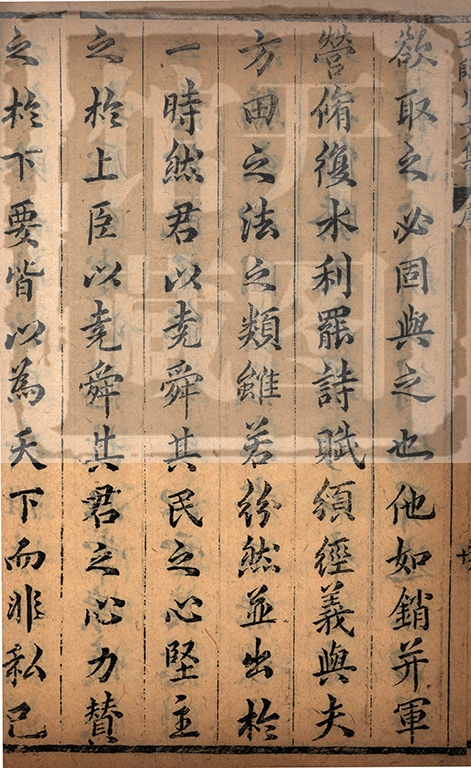 欲取之必固與之也他如銷并軍
營脩復水利罷詩賦頒經義與夫
方田之法之類雖若紛然並出於
一時然君以堯舜其民之心堅主
之於上臣以堯舜其君之心力贊
之於下要皆以為天下而非私己